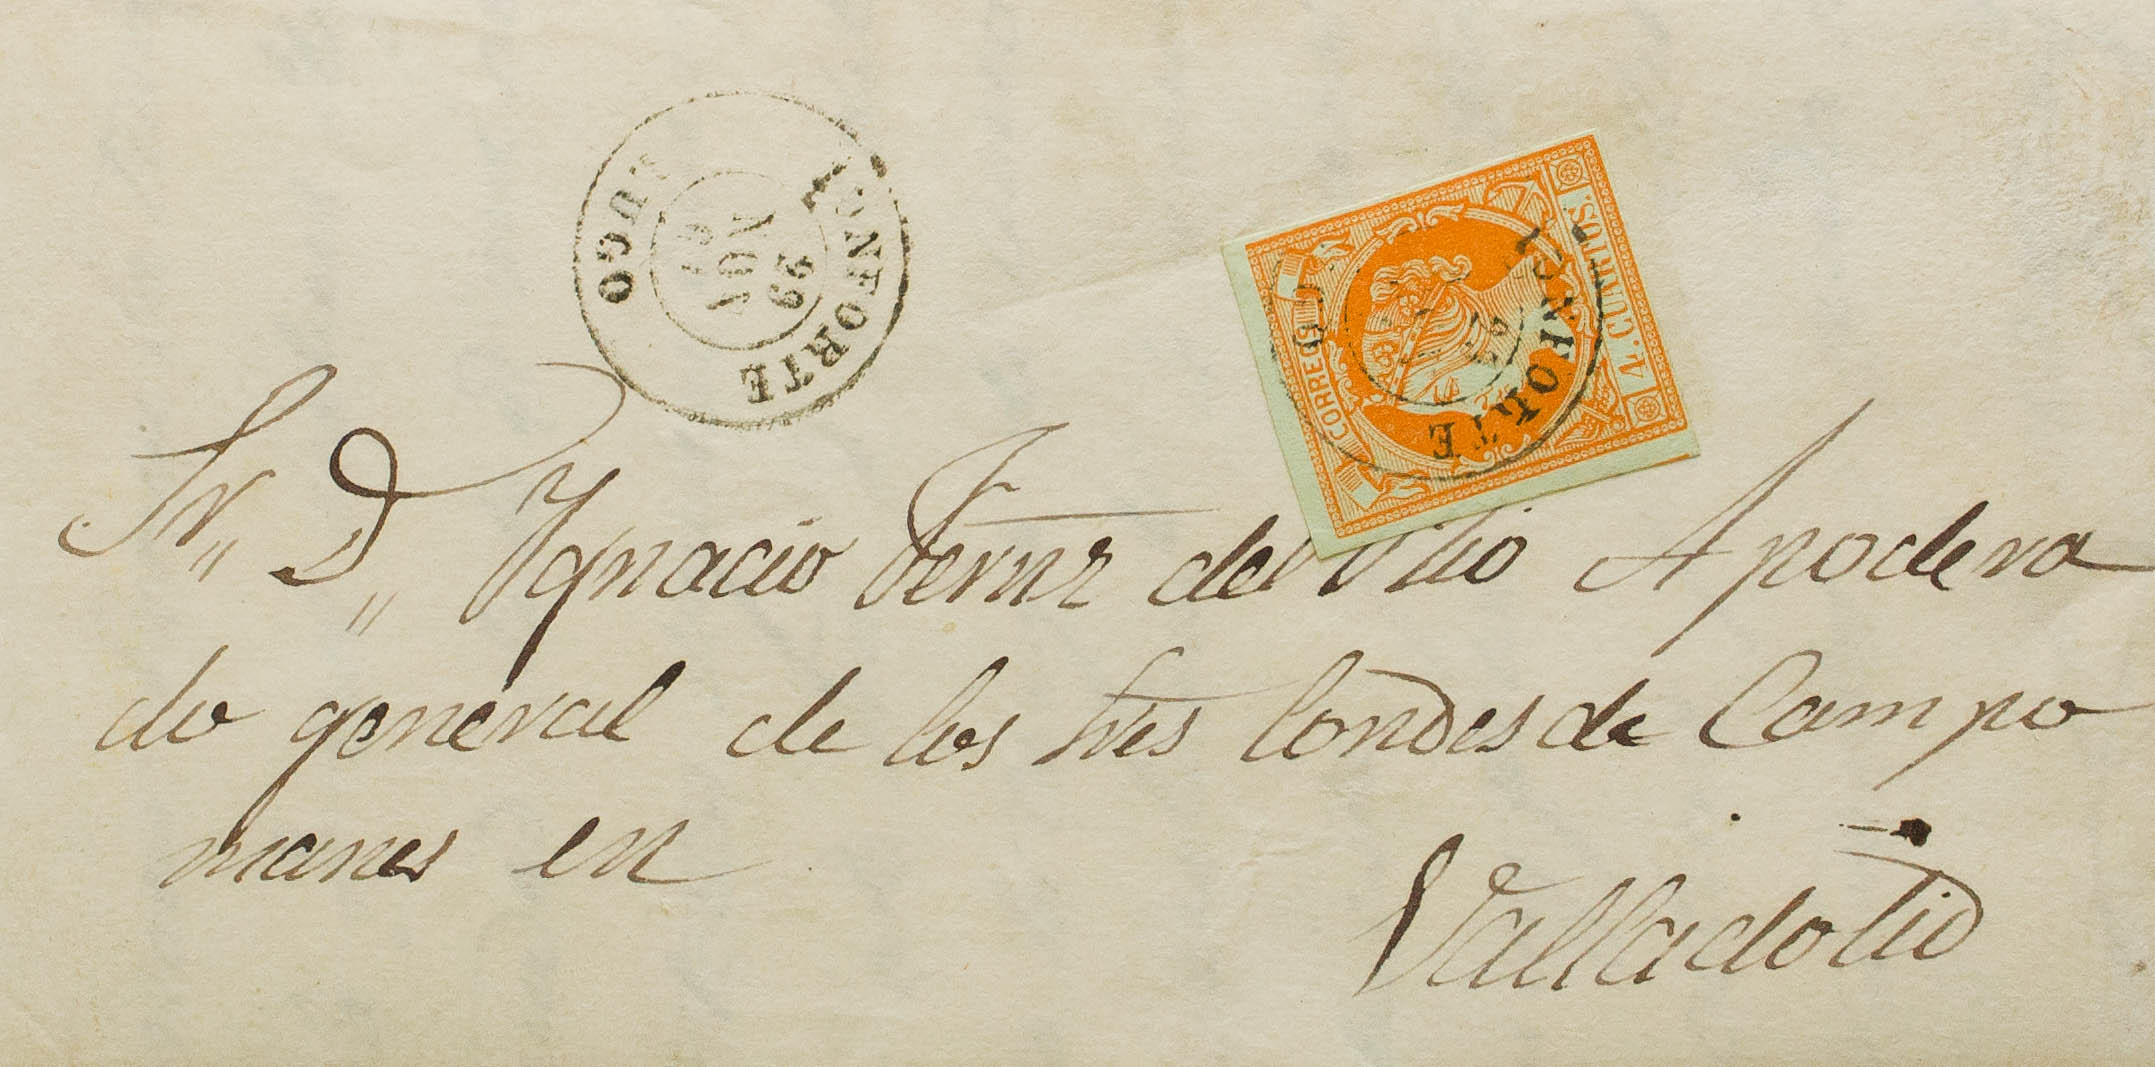 MONFORTE
LUGO
NOV
CORREOS
4. CUARTOS.
MONFORTE
Sr,, D,, Ygnacio Fernz del Vitio Apodera
do general de los tres Condes de Campo
manes en
Valladolid